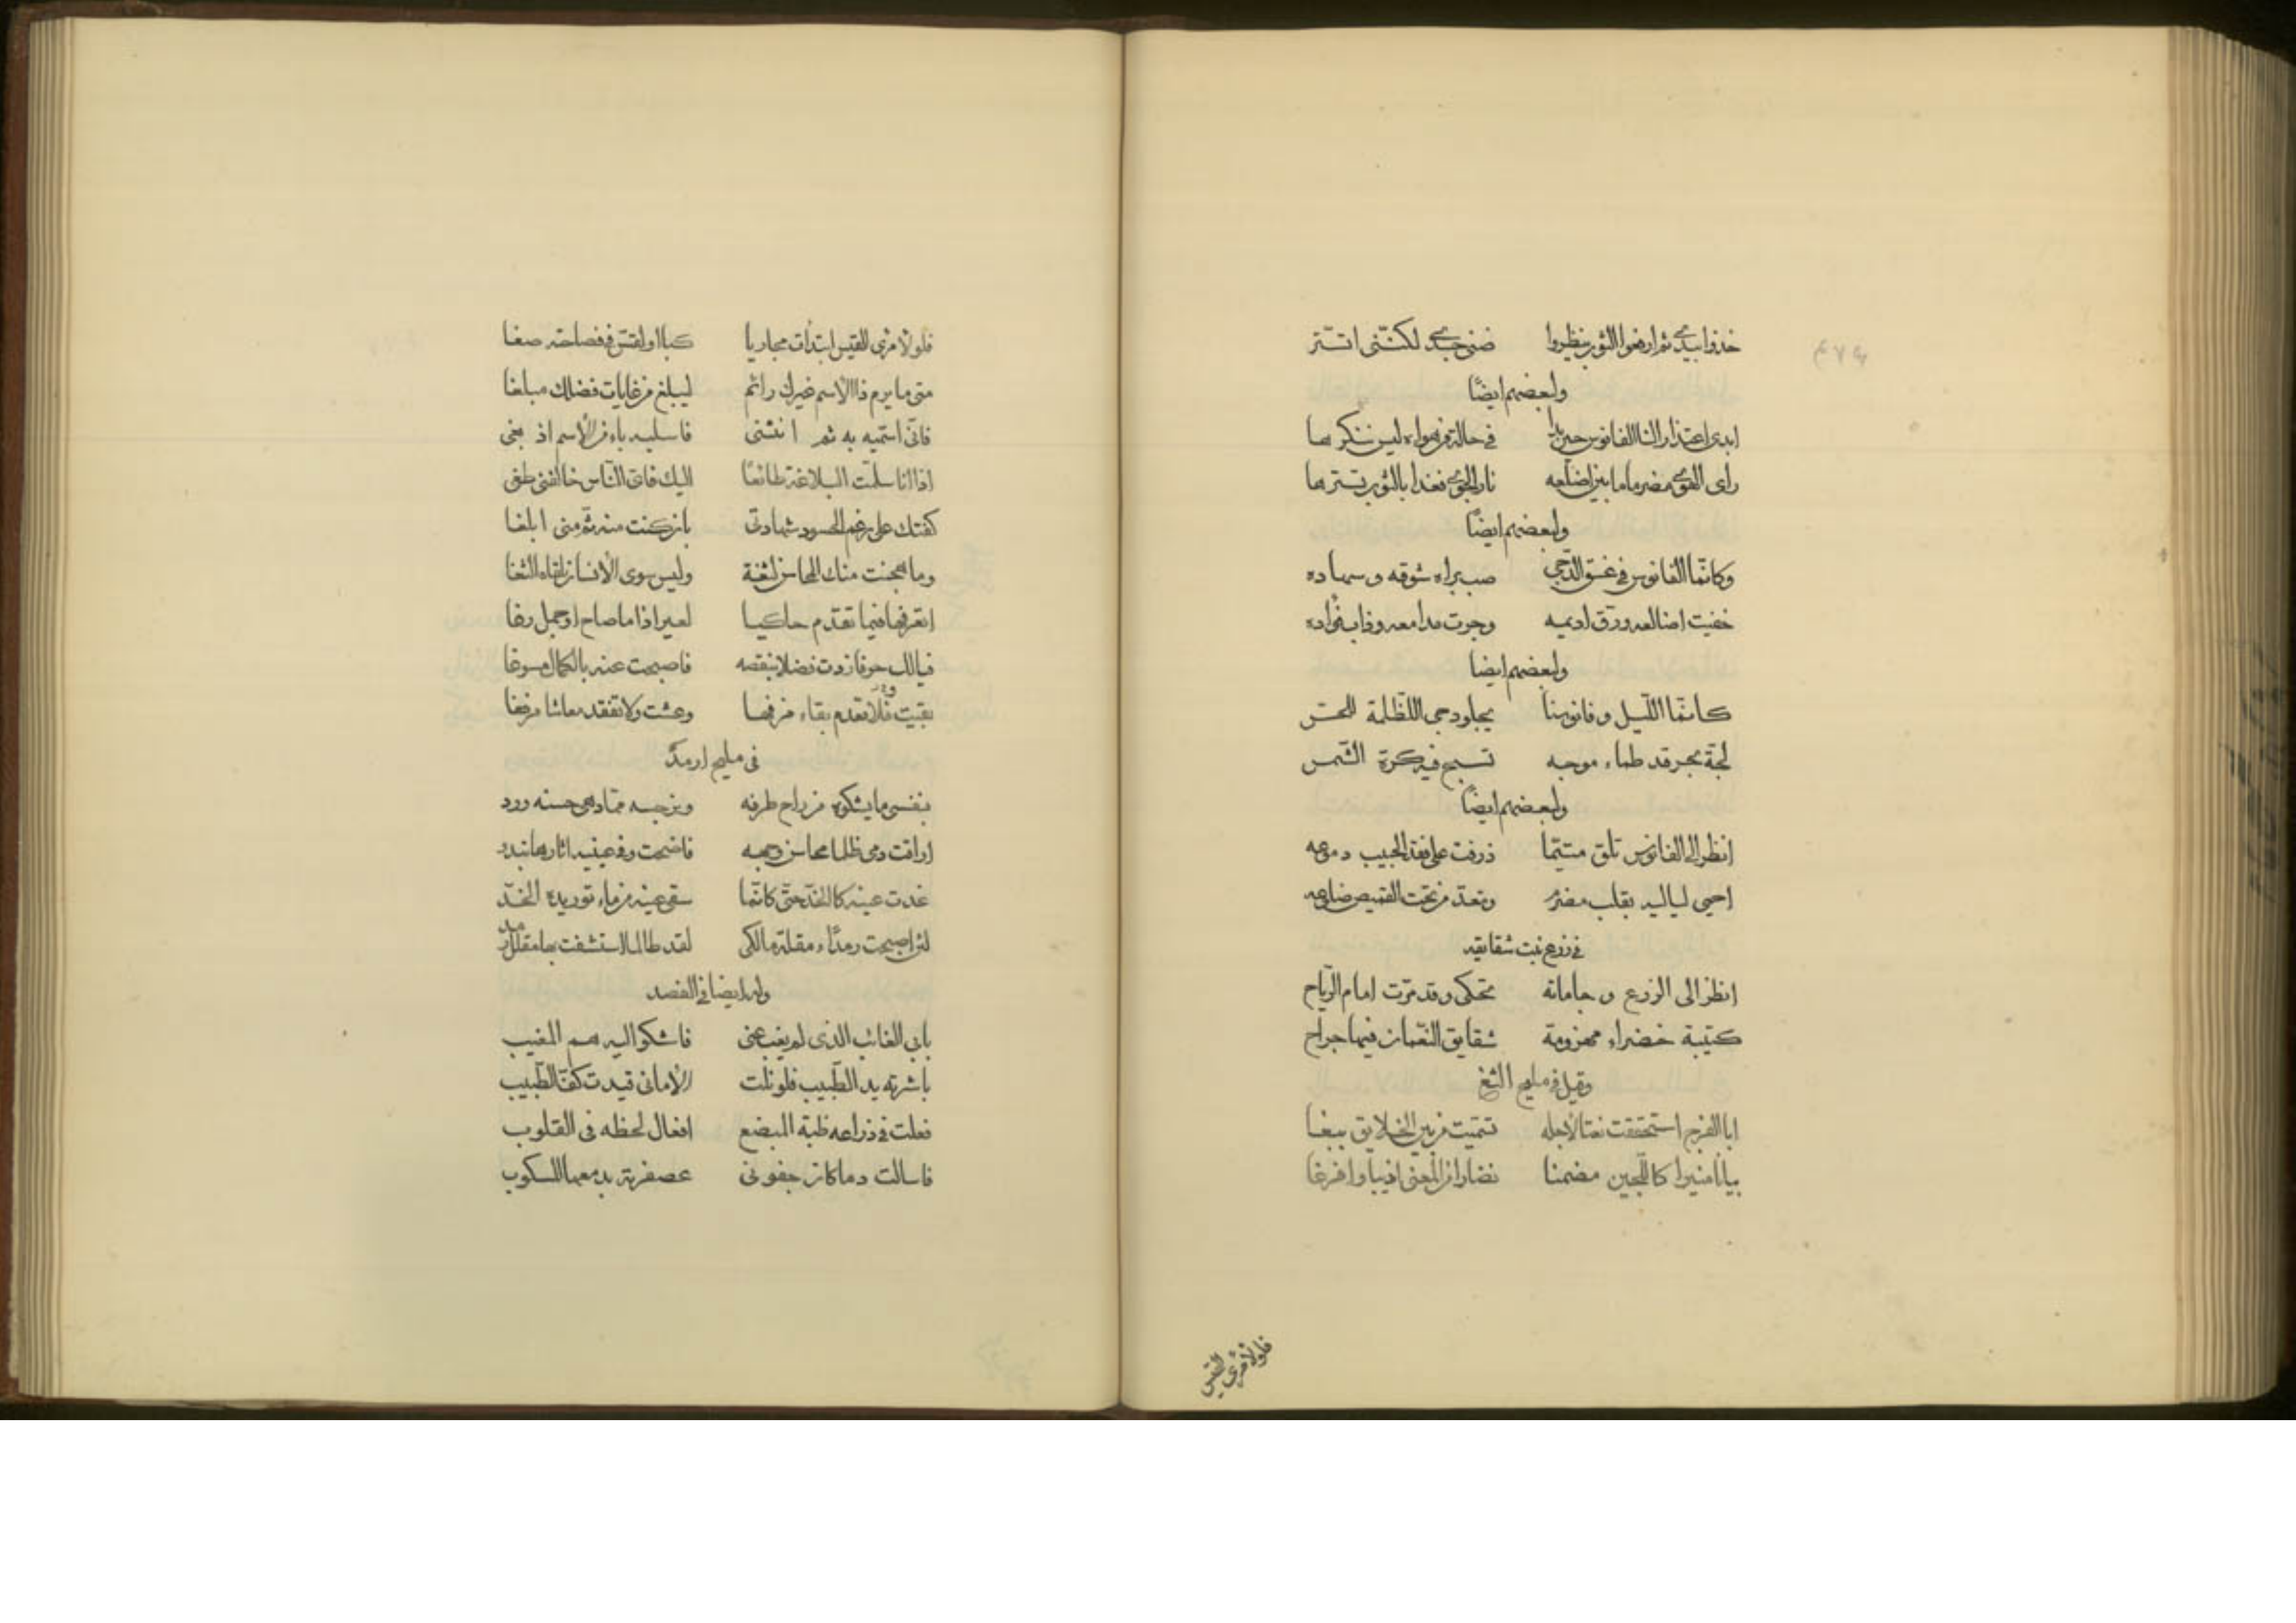 خذوا بيدي ثم ارفعوا الثوب ينظروا ضنى جسدي لكنني اتستر
ولبعضهم ايضًا
ابدى اعتذارا لنا الفانوس حين بدا في حالة من هواه ليس ننكرها
راى الهوى مضرما ما بين اضلعه نار الجوى فغدا بالثوب يسترها
ولبعضهم ايضًا
وكانّما الفانوس في غسق الدّجى صب براه شوقه وسهاده
خفيت اضالعه ورق اديمه وجرت مدامعه وذاب فؤاده
ولبعضهم ايضا
كانّما اللّيل وفانوسنا يجلو دجى الظّلمة للحسّ
لجّة بحر قد طماء موجه تسبح فيه كرة الشّمس
ولبعضهم ايضًا
انظر الى الفانوس تلق متيّما ذرفت على فقد الحبيب دموعه
احيى لياليه بقلب مضرم وتعدّ من تحت القميص ضلوعه
في زرع نبت شقايقه
انظر الى الزرع وخاماته تحكى وقد مرّت امام الرّياح
كتيبة خضراء مهزومة شقايق النّعمان فيها جراح
وقيل في مليح الثغ
ابا الفرج استحققت نعتا لاجله تسمّيت من بين الخلايق ببغا
بيانا منيرا كاللّجين مضمنا نضارا من المعنى اذيبا وافرغا
فلو لامرئ القيس
فلو لامرئ القيس ابتدات مجاريا كبا او لقسّ في فصاحته صغا
متى ما يرم ذا الاسم غيرك رائم ليبلغ من غايات فضلك مبلغا
فانّى اسمّيه به ثم انثنى فاسلبه باء من الاسم اذ بغى
اذا انا سلّمت البلاغة طائعًا اليك فاىّ النّاس خالفنى طغى
كفتك على رغم الحسود شهادتى بان كنت منه ثم منى ابلغا
وما هجنت منك المحاسن لثغة وليس سوى الانسان تلقاه الثغا
اتعرفها فيما تقدّم حاكيا لعير اذا ما صاح او جمل رغا
فيا لك حرفا زدت فضلا بنقصه فاصبحت عنه بالكمال مسوغا
بقيت ولا تعدم بقاء مرفها وعشت ولا تفقد معاشا مرفغا
فى مليح ارمد
بنفسى ما يشكوه من راح طرفه ونرجسه ممّا دهى حسنه ورد
اراقت دمى ظلما محاسن وجهه فاضحت وفى عينيه اثارها تبدو
غدت عينه كالخدّ حتّى كانّما سقى عينه من ماء توريده الخدّ
لئن اصبحت رمداء مقلة مالكى لقد طالما استشفت بها مقل رمد
وله ايضا في الفصد
بابى الغائب الذى لم يغب عنى فاشكو اليه هم المغيب
باشرته يد الطّبيب فلو نلت الامانى قيدت كفّ الطّبيب
فعلت في ذراعه ظبة المبضع افعال لحظه فى القلوب
فاسالت دما كان جفونى عصفرته بدمعها المسكوب